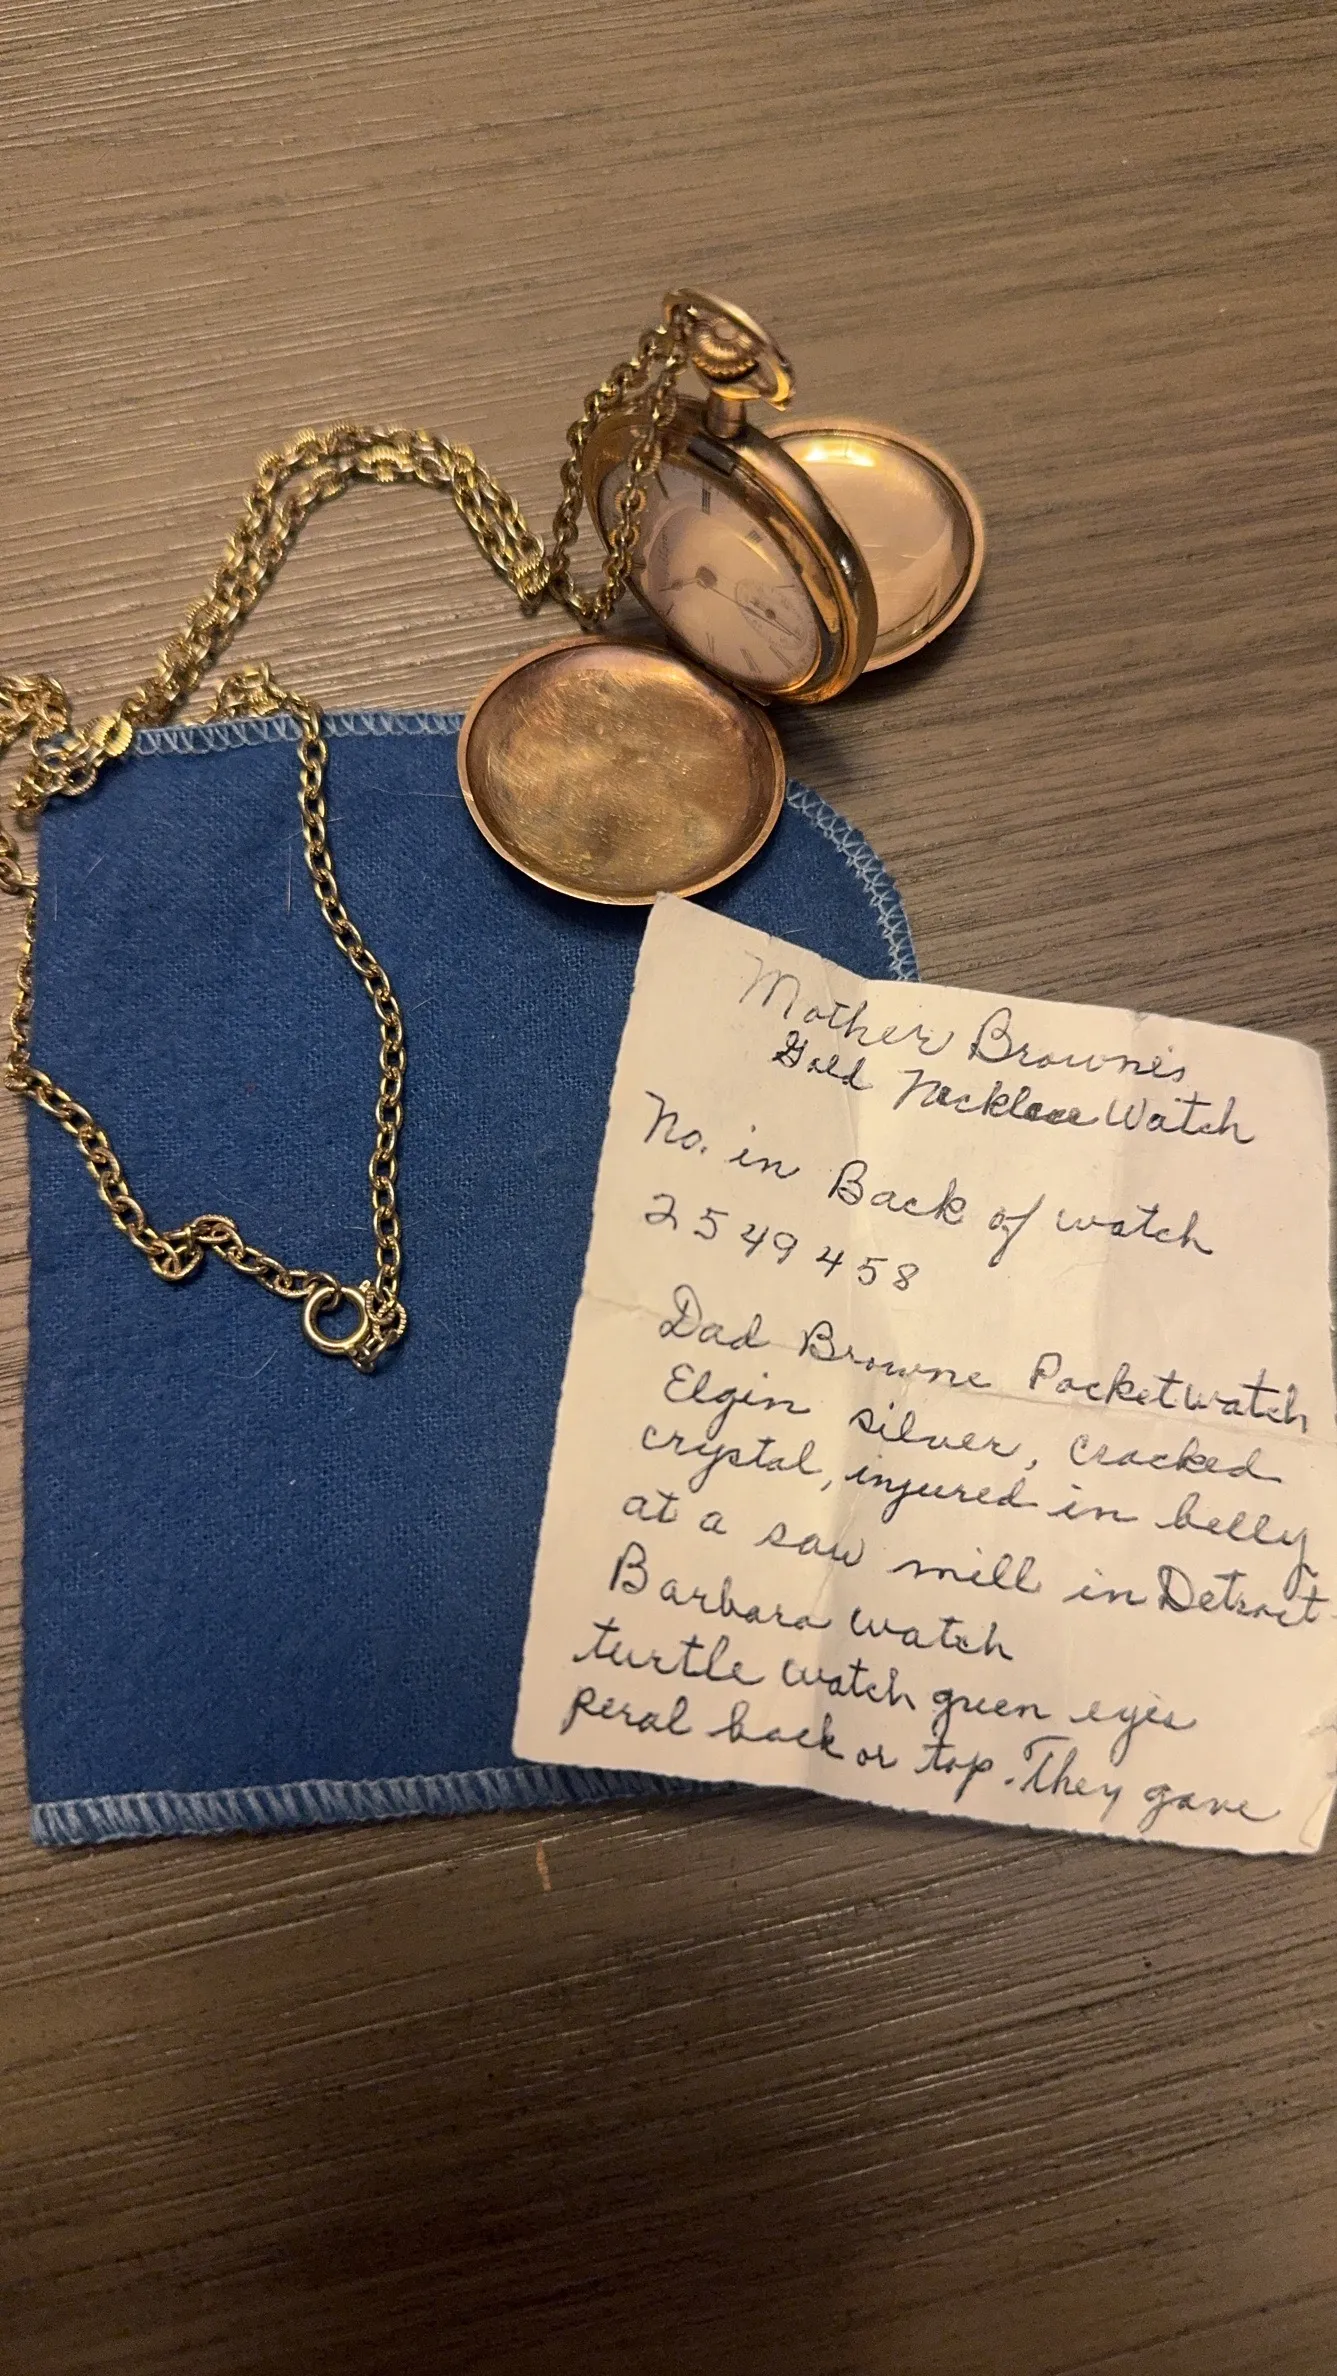 Mother Browne's
Gold Necklace Watch
No. in Back of watch
2549458
Dad Browne Pocketwatch
Elgin silver, cracked
crystal, injured in belly
at a saw mill in Detroit
Barbara watch
turtle watch green eyes
peral back or top. They gave